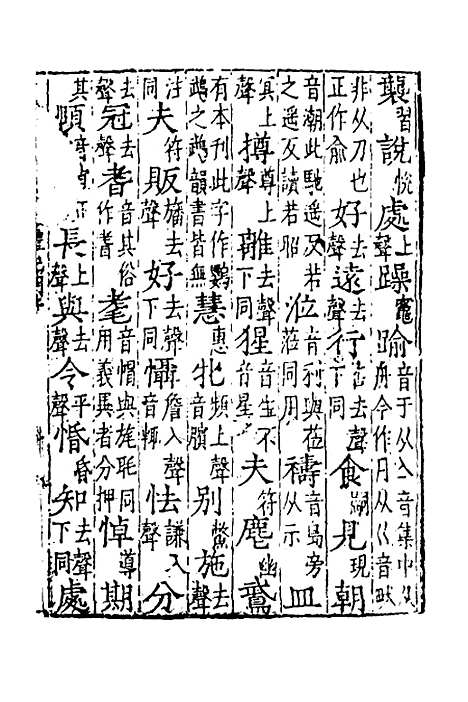 襲習說恱處上聲躁竈踰音于从亼音集中从舟今作月从巜音畎
非从刀也正作俞好去聲遠去聲行去聲下同食嗣見現朝
音潮此馳遥反若之遥反讀若昭涖音利與莅蒞同用禱音島旁从示皿
冥上聲撙尊上聲離去聲下同猩音生不音星夫符麀幽
有本刊此字作鸚鵡之鵡韻書皆無慧惠牝頻上聲音臏別鱉施去聲
注同夫符販旛去聲好去聲下同懾詹入聲音輒怯謙入聲分
去聲冠去聲耆音其俗作耆耄音帽與旄眊同用義異者分押悼導期
其頤長上聲與去聲令平聲惛昏知去聲下同處